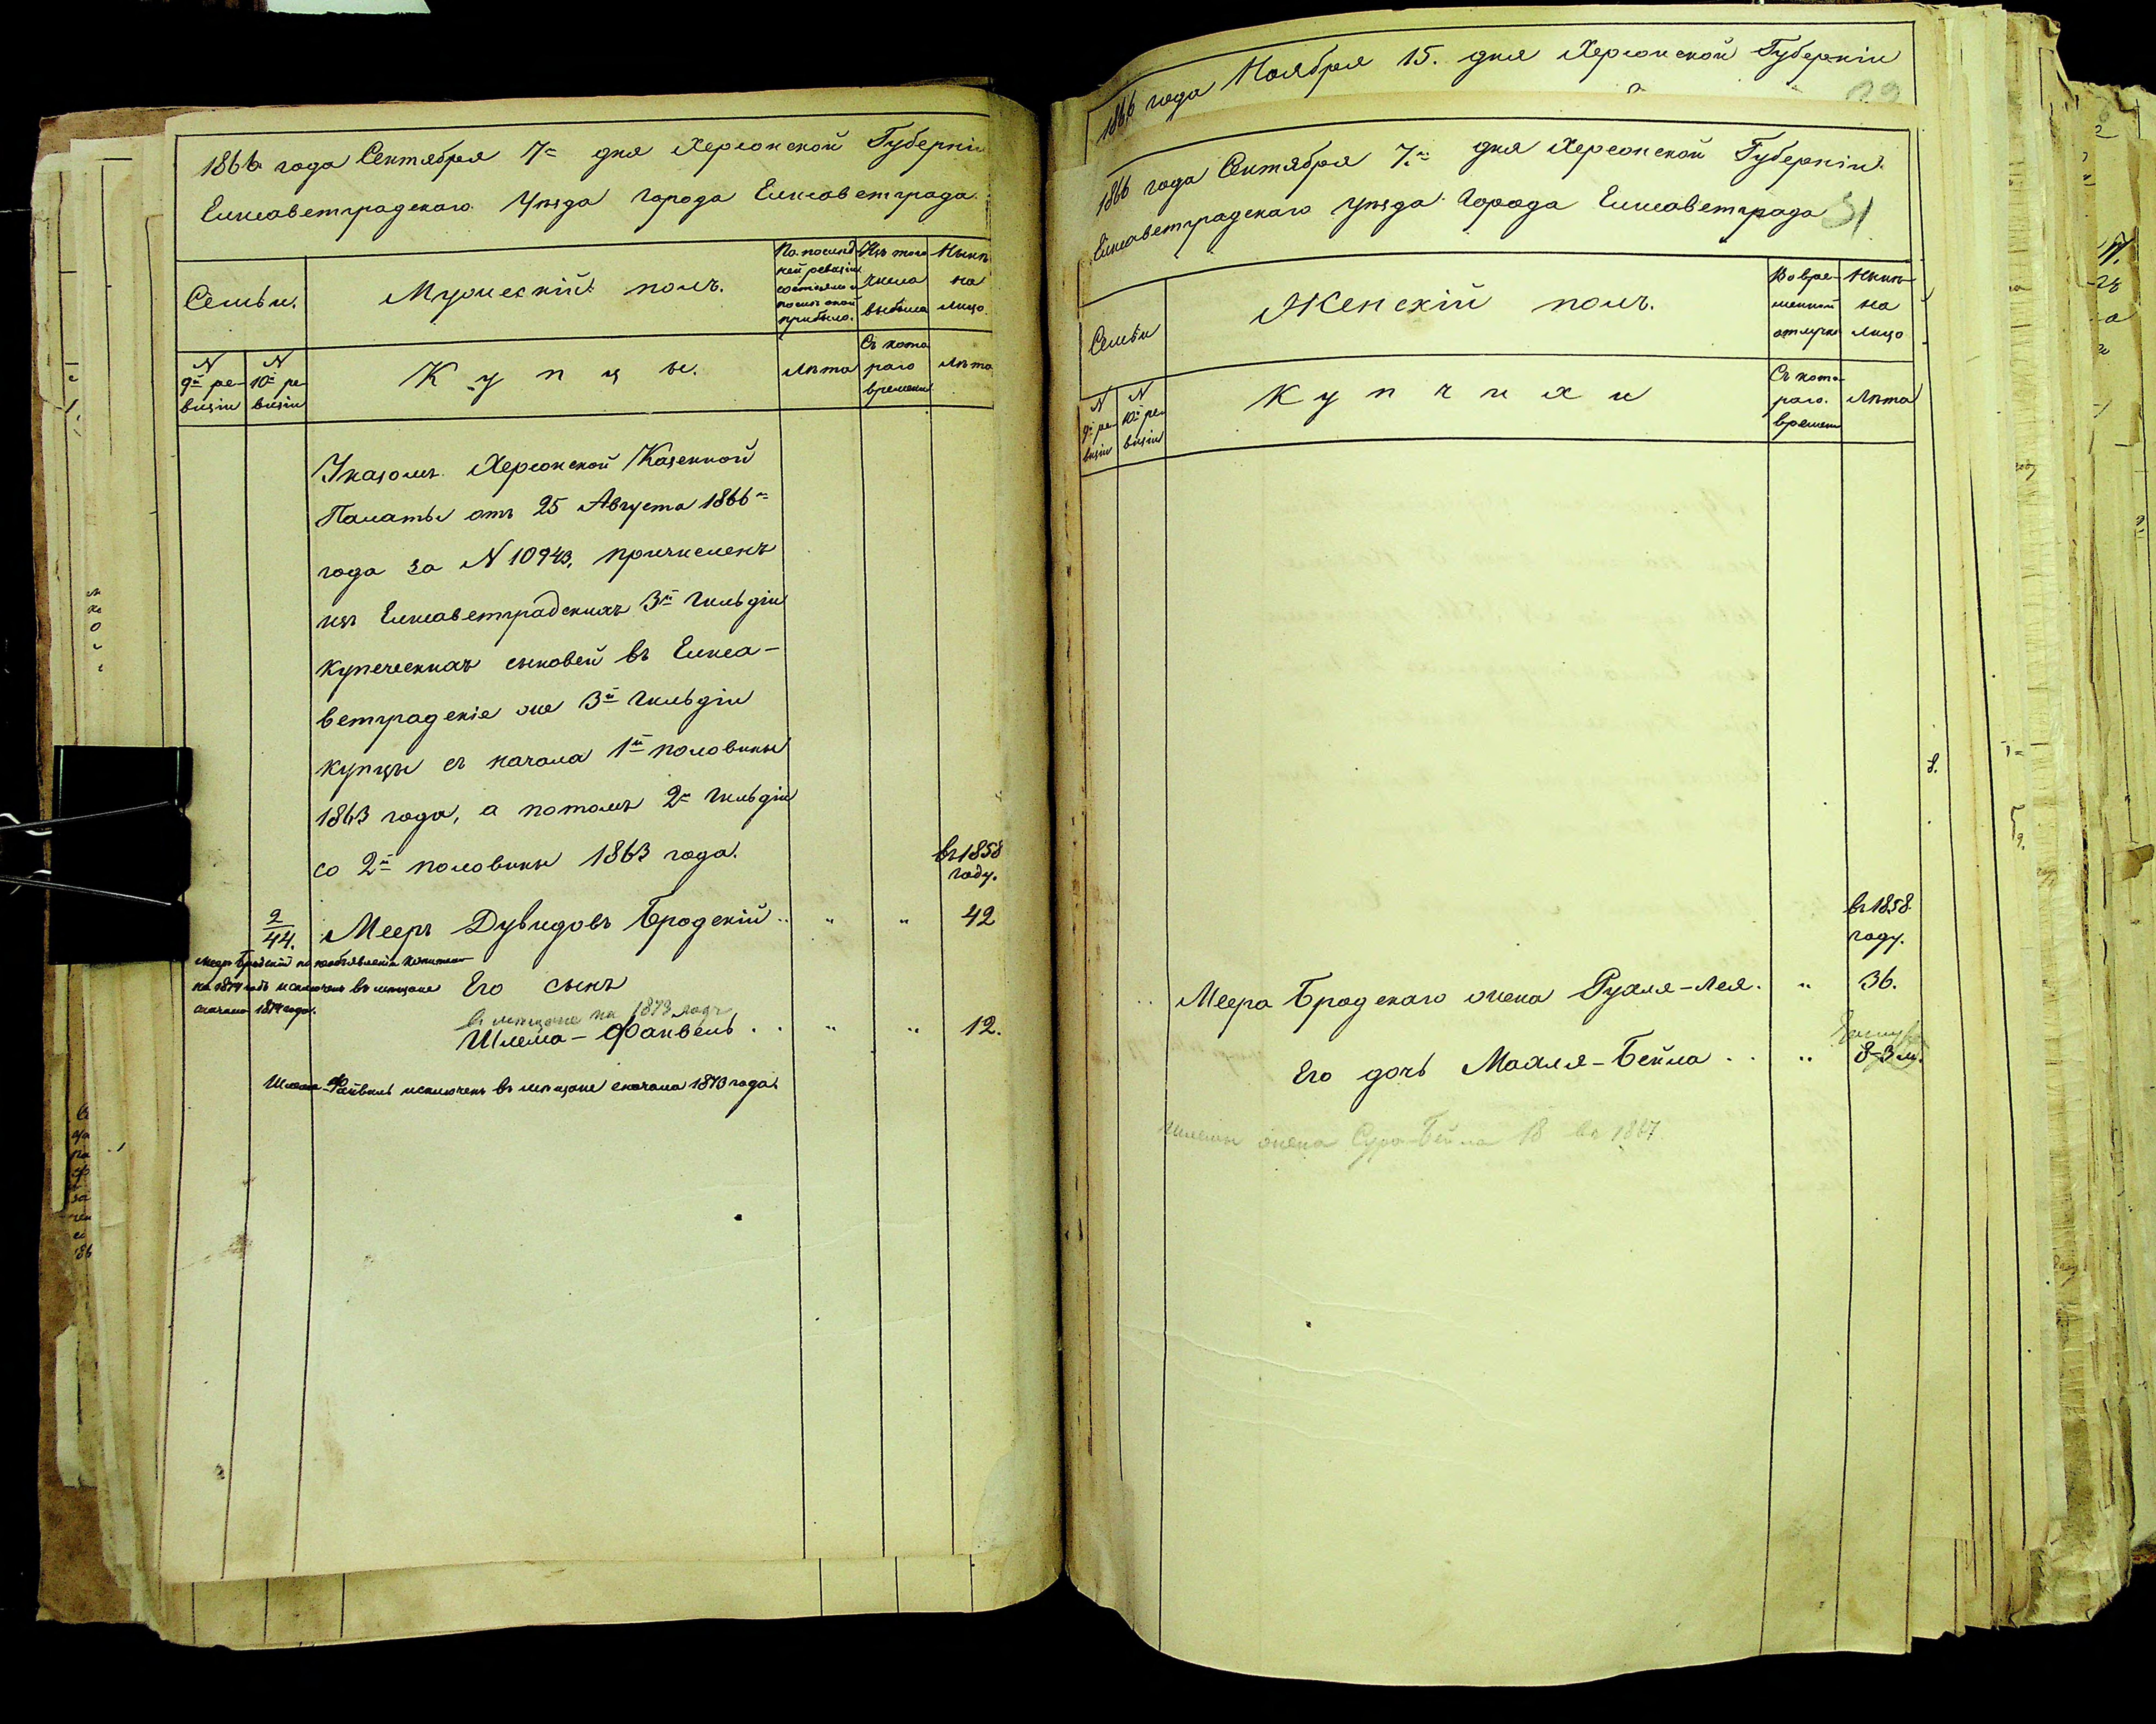 1866 года Сентября 7го дня Херсонской Губерніи
Елисаветградскаго Уѣзда Города Елисаветграда
Семьи.
Мужескій полъ.
По послѣд
ней ревизіи
состояло и
послѣ оной
прибыло.
Изъ того
числа
выбыло
Нынѣ
на
лицо.
N
9й ре-
визіи
N
10й ре-
визіи
Купцы.
Лѣта
Съ кото
раго
времени
Лѣта
Указомъ Херсонской Казенной
Палаты отъ 25 Августа 1866го
года за N 10943, причисленъ
изъ Елисаветградскихъ 3й Гильдіи
купеческихъ сыновей въ Елиса-
ветградскіе же 3й Гильдіи
купцы съ начала 1й половины
1863 года, а потомъ 2й Гильдіи
со 2й половины 1863 года.
въ 1858
году.
2
44.
Мееръ Дувидовъ Бродскій .. " " 42
Мееръ Бродскій по необъявленію капитала
на 1874 годъ исключенъ въ мѣщане
сначала 1874 года.
Его сынъ
въ мѣщане на 1873 годъ
Шлема-Файвель .. " " 12.
Шлема-Файвель исключенъ въ мѣщане сначала 1873 года.
1866 года Ноября 15. дня Херсонской Губерніи
1866 года Сентября 7го дня Херсонской Губерніи
Елисаветградскаго Уѣзда Города Елисаветграда
31
Семьи
Женскій полъ.
Во вре-
менной
отлучкѣ
Нынѣ
на
лицо
N
9й ре-
визіи
N
10й ре-
визіи
Купчихи
Съ кото-
раго.
времени
Лѣта
въ 1858
году.
Меера Бродскаго жена Рухля-Лея. " 36.
Его дочь Махля-Бейла .. " 8-3 м.
Шлемы жена Сура-Бейла 18 въ 1867.